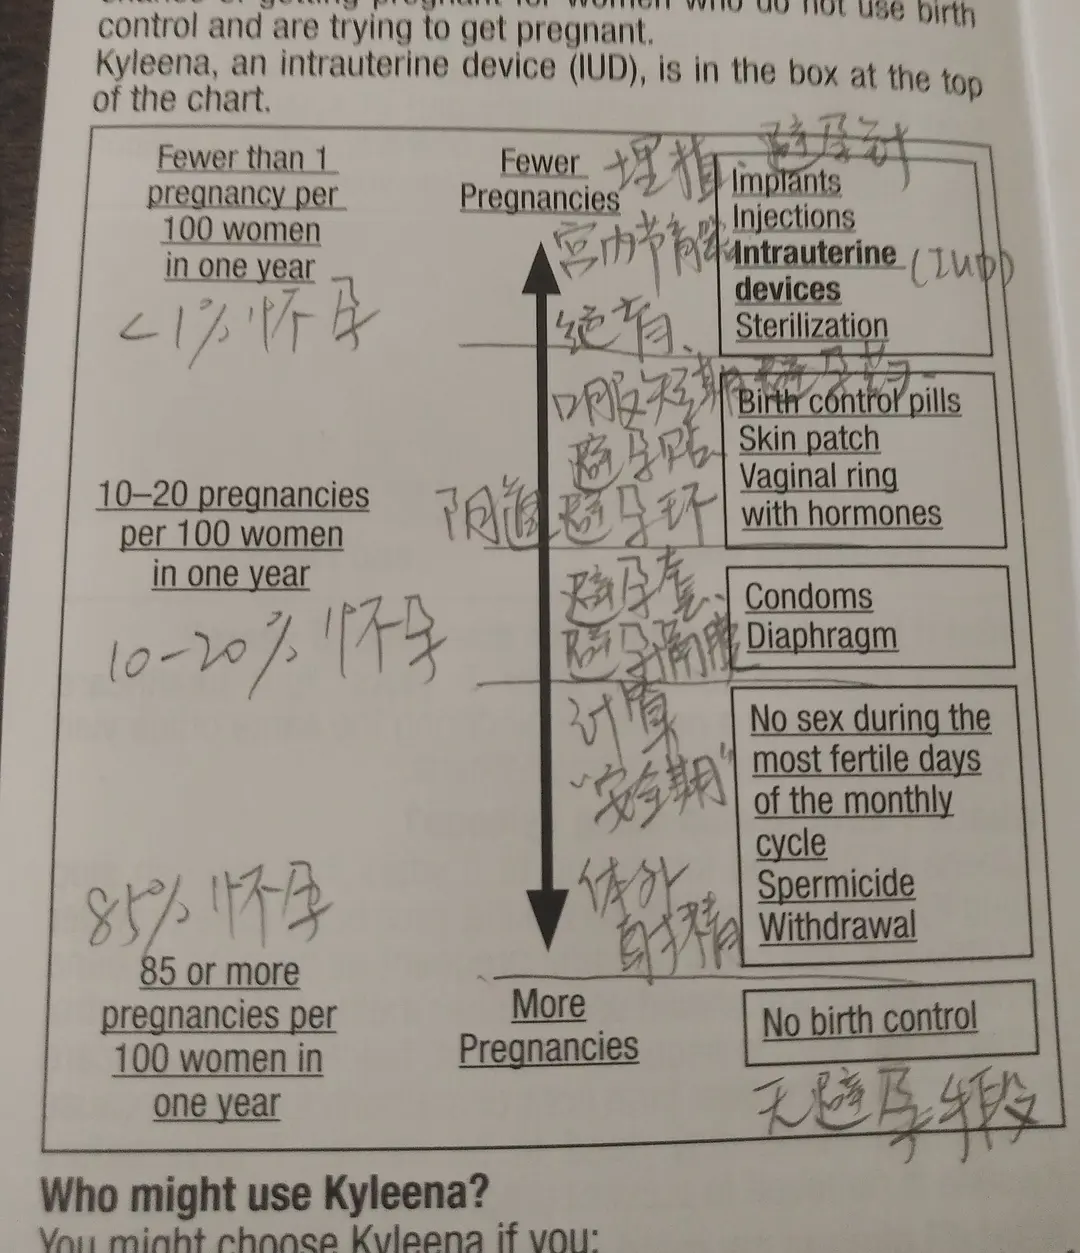 control and are trying to get pregnant.
Kyleena, an intrauterine device (IUD), is in the box at the top
of the chart.
Fewer than 1
pregnancy per
100 women
in one year
<1%怀孕
10–20 pregnancies
per 100 women
in one year
10-20%怀孕
85%怀孕
85 or more
pregnancies per
100 women in
one year
Fewer
Pregnancies
More
Pregnancies
埋植 避孕针
宫内节育器
绝育、
口服短期避孕药
避孕贴
阴道避孕环
避孕套、
避孕隔膜
计算
“安全期”
体外
射精
Implants
Injections
Intrauterine (IUD)
devices
Sterilization
Birth control pills
Skin patch
Vaginal ring
with hormones
Condoms
Diaphragm
No sex during the
most fertile days
of the monthly
cycle
Spermicide
Withdrawal
No birth control
无避孕手段
Who might use Kyleena?
You might choose Kyleena if you: